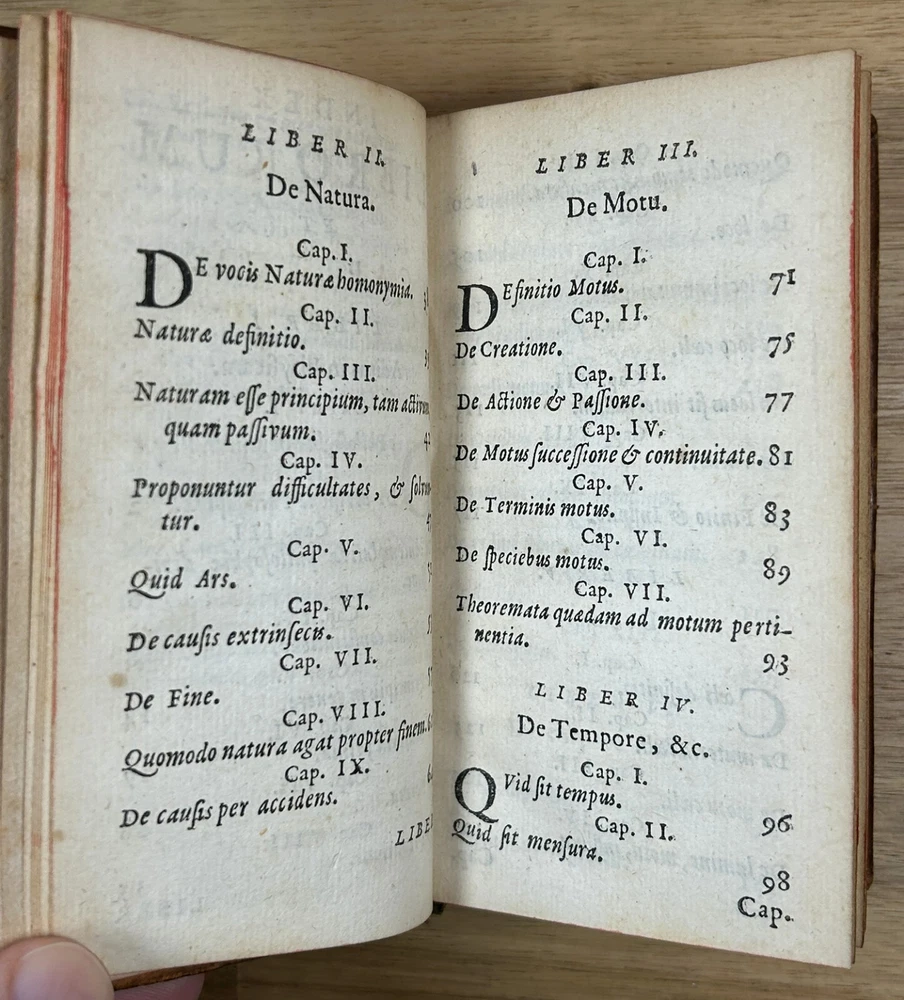 LIBER II.
De Natura.
Cap. I.
DE vocis Naturæ homonymia.
Cap. II.
Naturæ definitio.
Cap. III.
Naturam eſſe principium, tam
quam paſſivum.
Cap. IV.
Proponuntur difficultates, &
tur.
Cap. V.
Quid Ars.
Cap. VI.
De cauſis extrinſecis.
Cap. VII.
De Fine.
Cap. VIII.
Quomodo natura agat propter finem.
Cap. IX.
De cauſis per accidens.
LIBER III.
De Motu.
Cap. I.
DEfinitio Motus. 71
Cap. II.
De Creatione. 75
Cap. III.
De Actione & Paſſione. 77
Cap. IV.
De Motus ſucceſſione & continuitate. 81
Cap. V.
De Terminis motus. 83
Cap. VI.
De ſpeciebus motus. 89
Cap. VII.
Theoremata quædam ad motum perti-
nentia. 93
LIBER IV.
De Tempore, &c.
Cap. I.
QVid ſit tempus. 96
Cap. II.
Quid ſit menſura. 98
Cap.